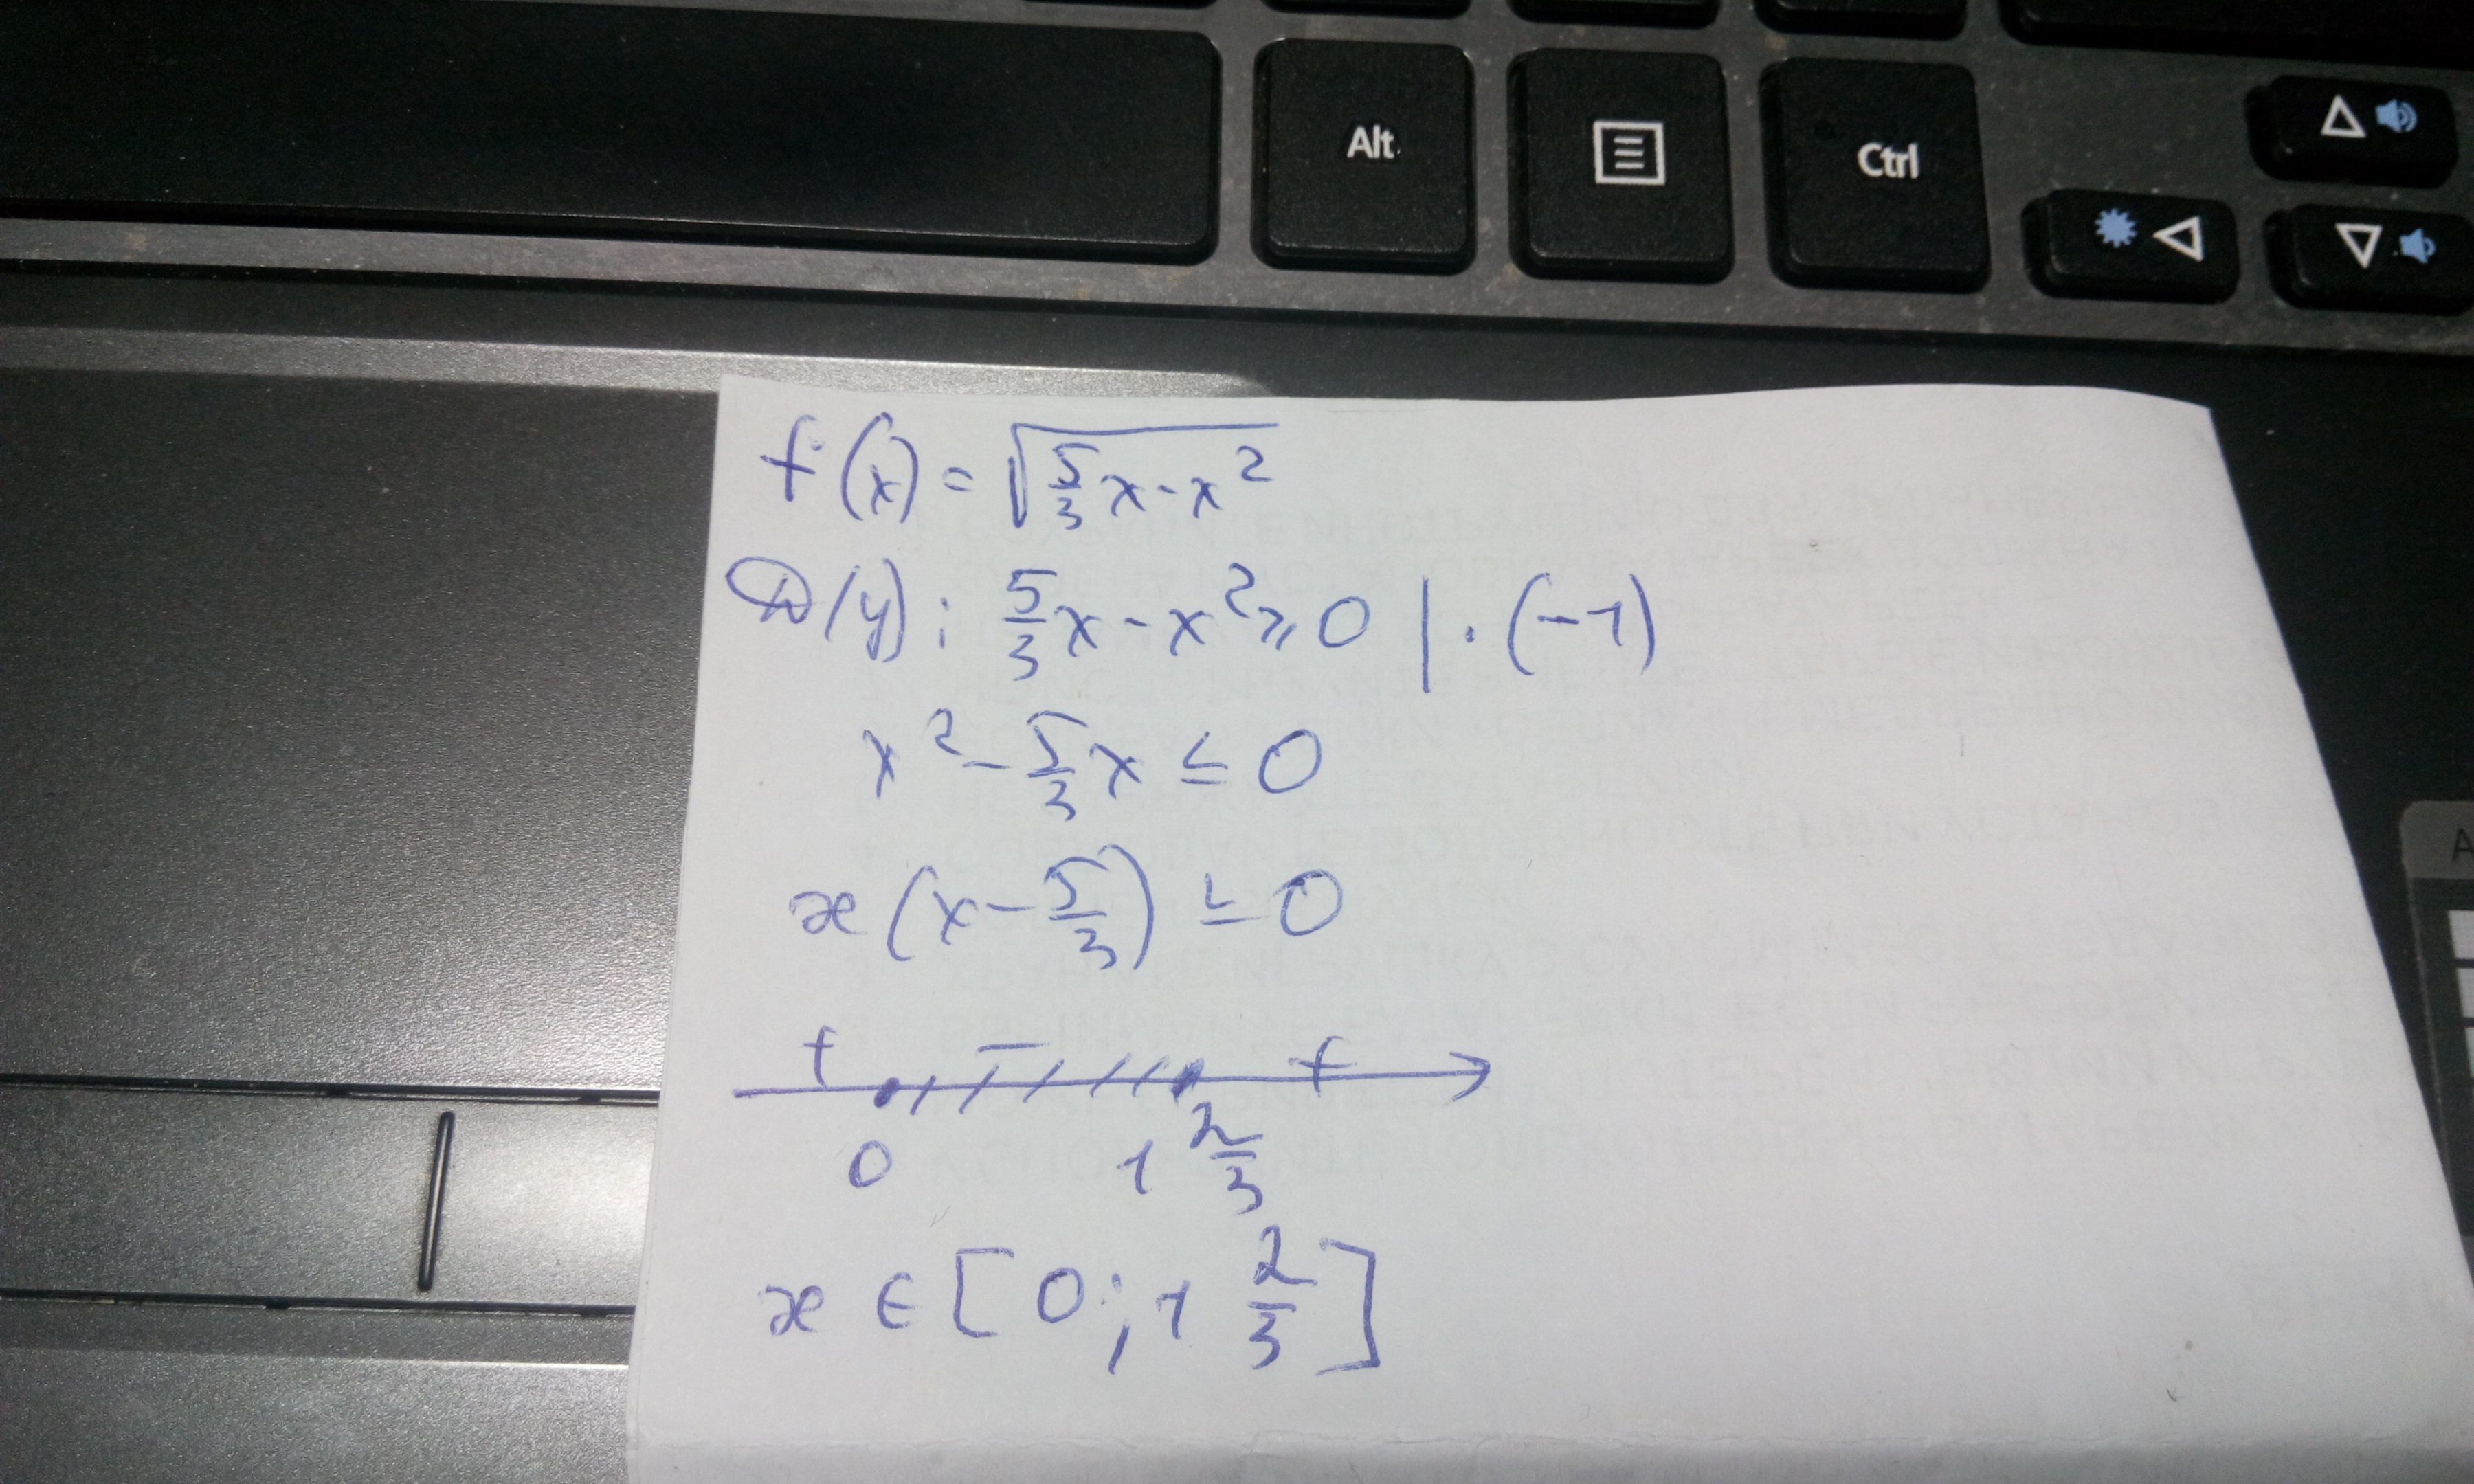 Alt
Ctrl
f(x) = √(5/3 x - x²)
D(y): 5/3 x - x² ≥ 0 | · (-1)
x² - 5/3 x ≤ 0
x(x - 5/3) ≤ 0
+ - +
0 1 2/3
x ∈ [0; 1 2/3]